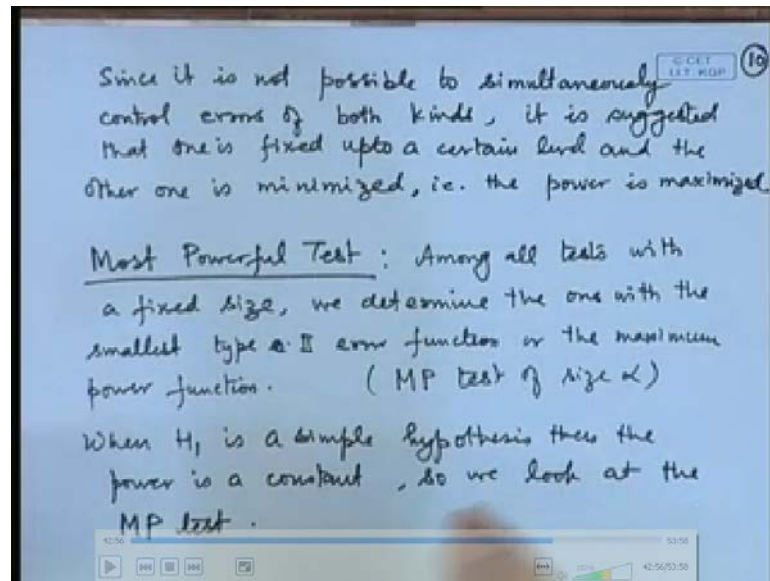 © CET
I.I.T. KGP
10
Since it is not possible to simultaneously
control errors of both kinds, it is suggested
that one is fixed upto a certain level and the
other one is minimized, ie. the power is maximized
Most Powerful Test : Among all tests with
a fixed size, we determine the one with the
smallest type II error function or the maximum
power function. ( MP test of size α )
When H₁ is a simple hypothesis then the
power is a constant, so we look at the
MP test.
42:56
53:58
100%
42:56/53:58